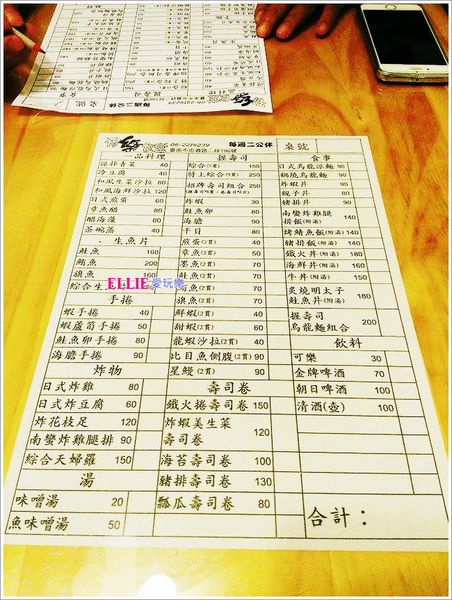 06-2214239 每週二公休 桌號
一品料理
涼拌青菜 40
冷豆腐 40
和風生菜沙拉 80
和風海鮮沙拉 120
日式煎蛋 60
章魚醋 80
醋海藻 80
茶碗蒸 40
生魚片
鮭魚 160
鮪魚 200
旗魚 160
綜合生
手捲
蝦手捲 40
蝦蘆筍手捲 50
鮭魚卵手捲 90
海膽手捲 90
炸物
日式炸雞 80
日式炸豆腐 60
炸花枝足 120
南蠻炸雞腿排 90
綜合天婦羅 150
湯
味噌湯 20
魚味噌湯 50
握壽司
綜合(5貫) 150
特上綜合(5貫) 250
招牌壽司組合 250
炸蝦 30
鮭魚卵 80
海膽 90
干貝 80
煎蛋(2貫) 40
章魚(2貫) 50
墨魚(2貫) 70
鮭魚(2貫) 70
旗魚(2貫) 70
鮮蝦(2貫) 40
甜蝦(2貫) 60
龍蝦沙拉(2貫) 40
比目魚側腹(2貫) 90
星鰻(2貫) 90
壽司卷
鐵火捲壽司卷 150
炸蝦美生菜
壽司卷 120
海苔壽司卷 100
豬排壽司卷 130
瓢瓜壽司卷 80
食事
日式烏龍涼麵 90
鍋燒烏龍麵 90
炸蝦丼 90
親子丼 80
豬排丼 90
南蠻炸雞腿
飯(附湯) 140
烤鯖魚飯(附湯) 140
豬排飯(附湯) 140
鐵火丼(附湯) 160
海鮮丼(附湯) 160
牛丼(附湯) 150
炙燒明太子
鮭魚丼(附湯) 180
握壽司
烏龍麵組合 200
飲料
可樂 30
金牌啤酒 70
朝日啤酒 100
清酒(壺) 100
合計：
ELLIE愛玩樂